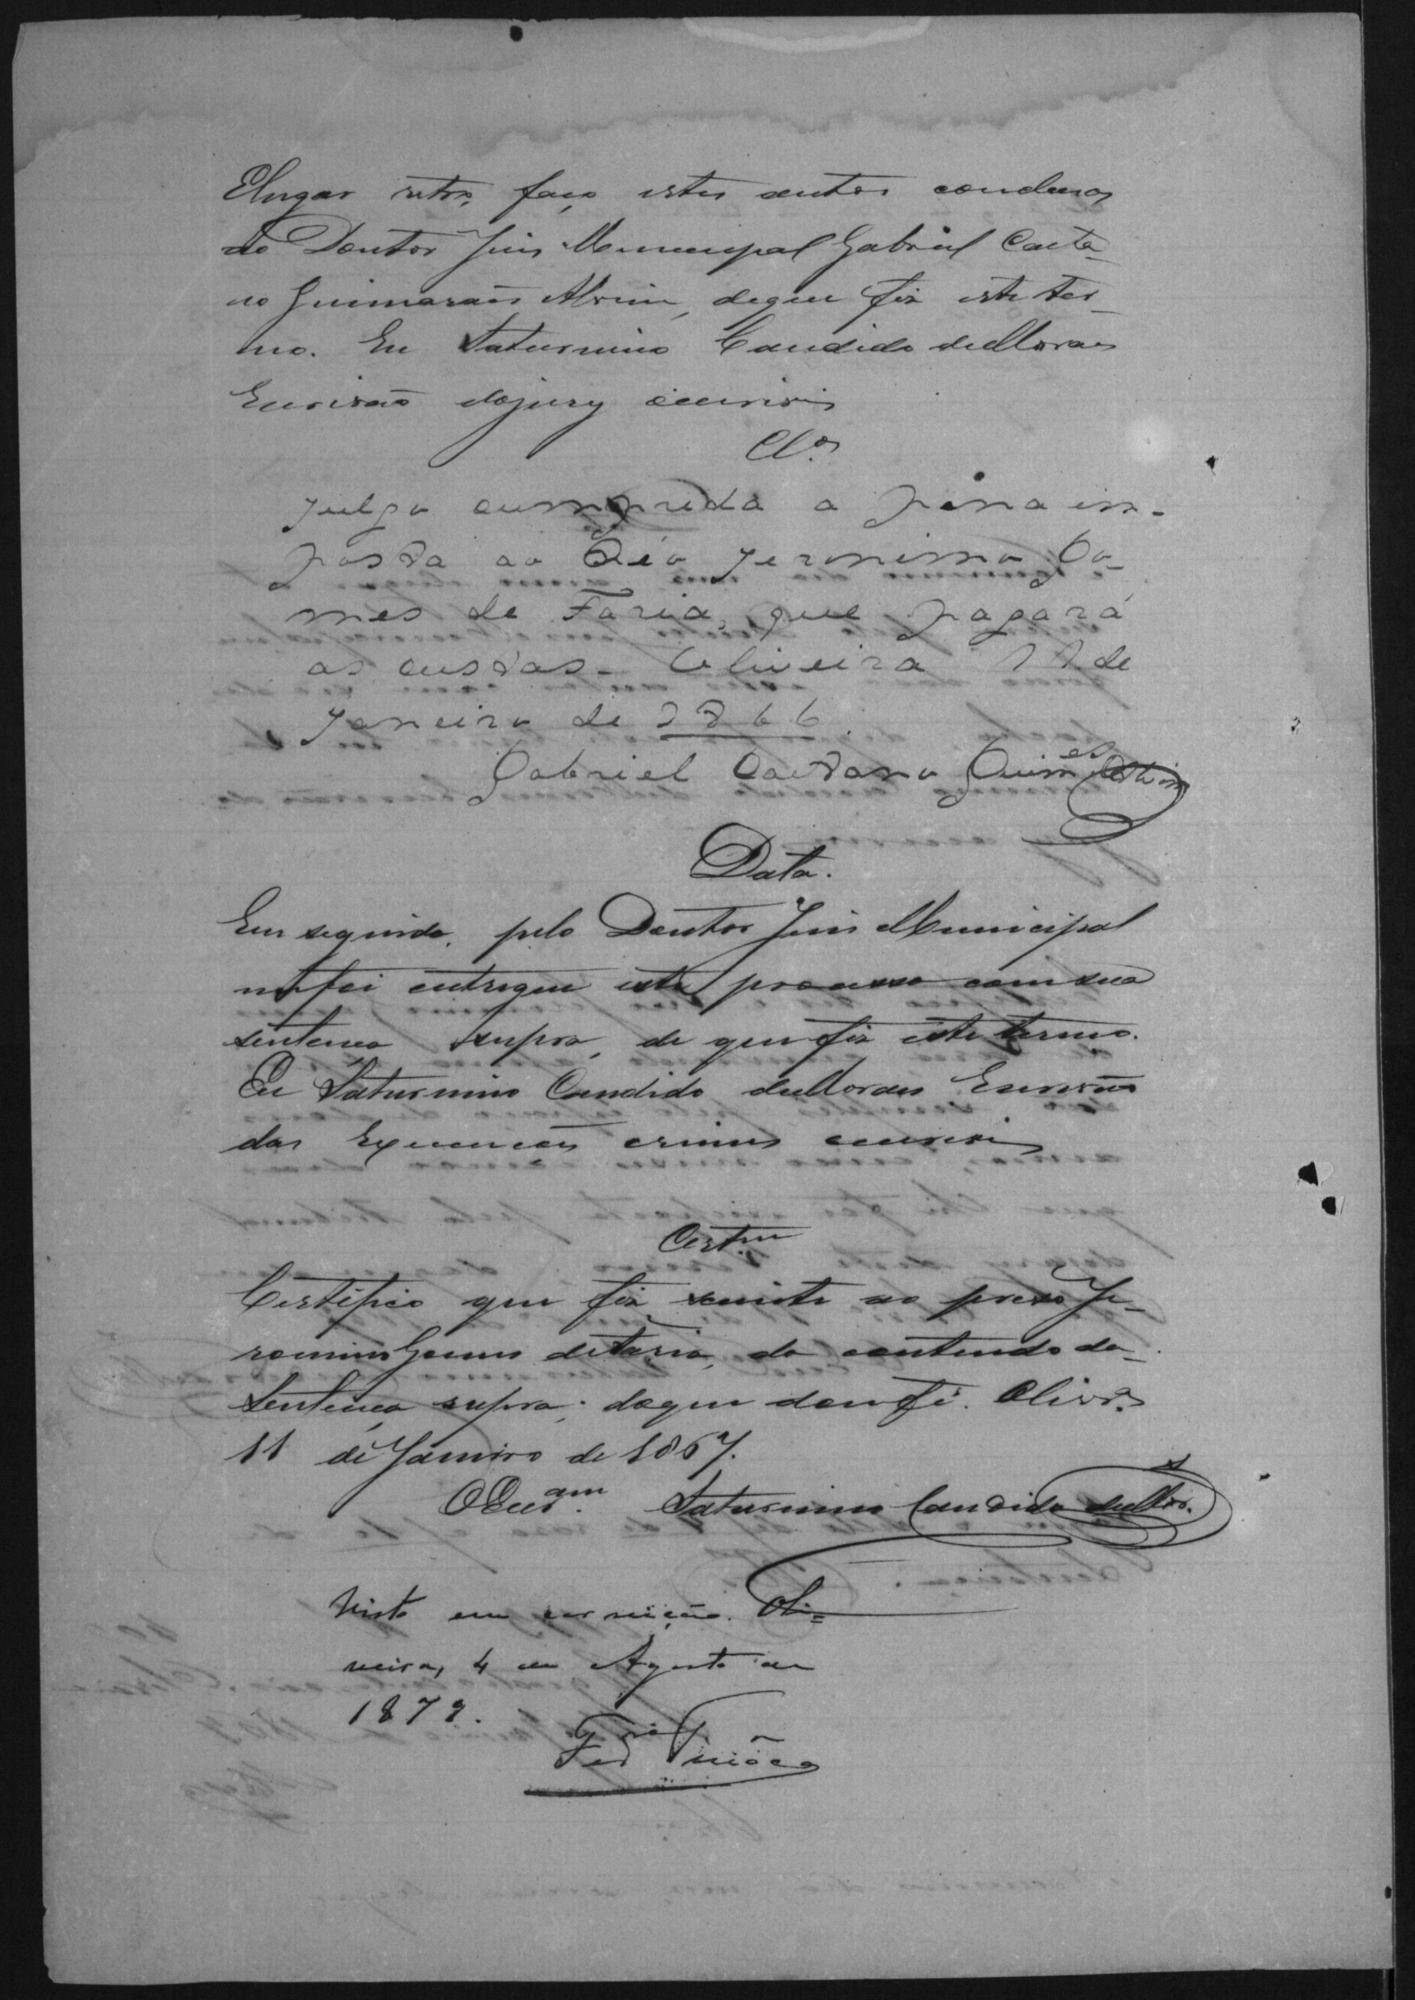 E lugar retro, faço estes autos concluzos
ao Doutor Juis Municipal Gabriel Caeta-
no Guimarães Alvim, de que fiz este ter-
mo. Eu Saturnino Candido de Moraes
Escrivão do jury escrivi
Clos
Julgo cumprida a pena im-
posta ao Réo Jeronimo Go-
mes de Faria, que pagará
as custas. Oliveira 11 de
Janeiro de 1866
Gabriel Caetano Guimes Alvim
Data.
Em seguida, pelo Doutor Juis Municipal
me foi entregue este processo com sua
sentença supra, de que fiz este termo.
Eu Saturnino Candido de Moraes Escrivão
das Execuções crimes escrivi
Certam
Certifico que fiz sciente ao prezo Je-
ronimo Gomes de Faria, do contendo da
Sentença supra; do que dou fé. Olivra
11 de Janeiro de 1867.
O Escram Saturnino Candido de Mor.
Visto em correição. Oli-
veira, 4 de Agosto de
1872.